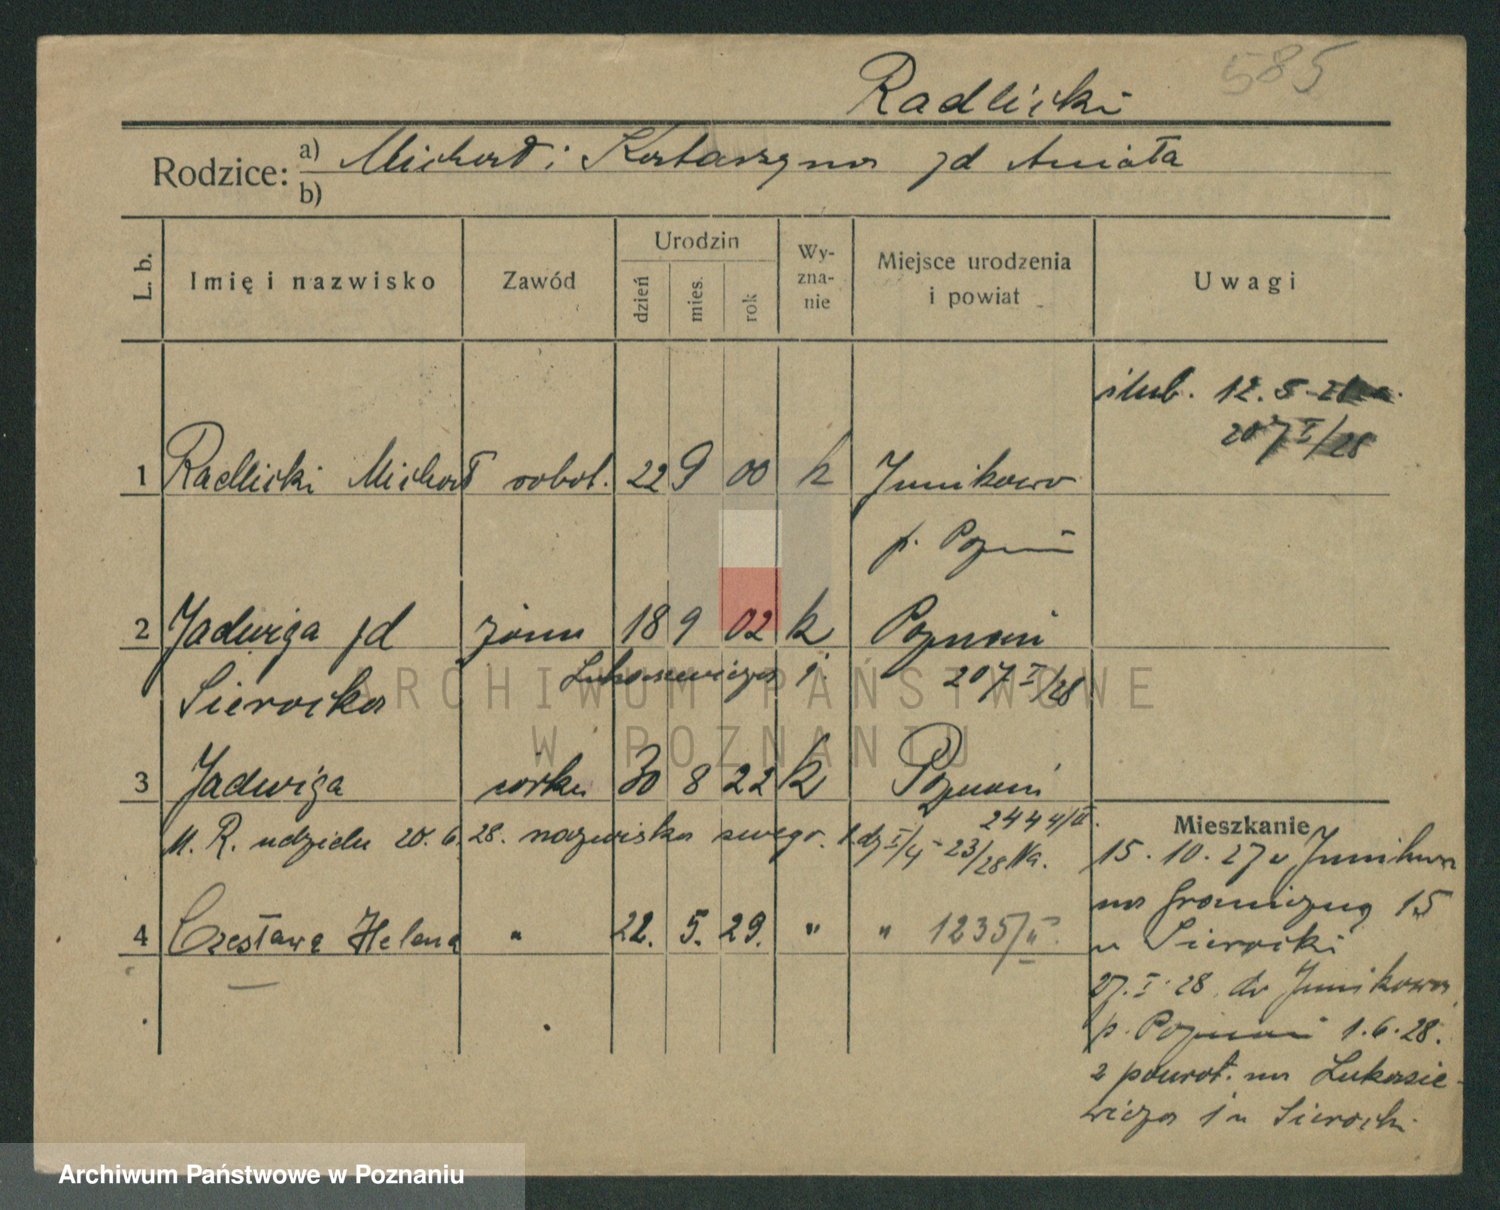 585
Radlicki
Rodzice: a) Michał i Katarzyna zd Anioła
b)
L. b.
Imię i nazwisko
Zawód
Urodzin
dzień
mies.
rok
Wy-
zna-
nie
Miejsce urodzenia
i powiat
Uwagi
ślub. 12. 8
207 I/28
1 Radlicki Michał robot. 22 9 00 k Junikowo
p. Poznań
2 Jadwiga zd żona 18 9 02 k Poznań
Sierocka Łukasiewicza 1. 207 I/28
3 Jadwiga córka 30 8 22 k Poznań
2444/II.
M. R. udziela 20. 6. 28. nazwiska swego. I/4 - 23/28
4 Czesława Helena " 22. 5. 29. " " 1235/II.
Mieszkanie
15. 10. 27 z Junikowa
na Graniczną 15
u Sierocki
27. I. 28 do Junikowa
p. Poznań 1. 6. 28.
z powrot. na Łukasie-
wicza 1 u Sierocki
ARCHIWUM PAŃSTWOWE
W POZNANIU
Archiwum Państwowe w Poznaniu